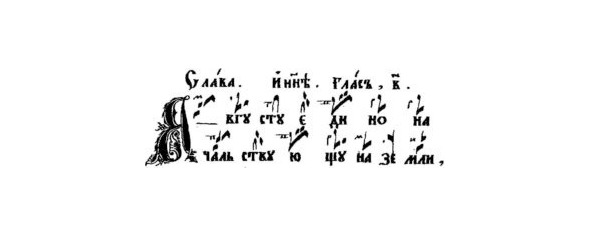 Сла́ва. И҆ ны́нѣ. Гла́съ, в҃.
Авгу сту є ди но на
ча́ль ству ю щу на зе мли,